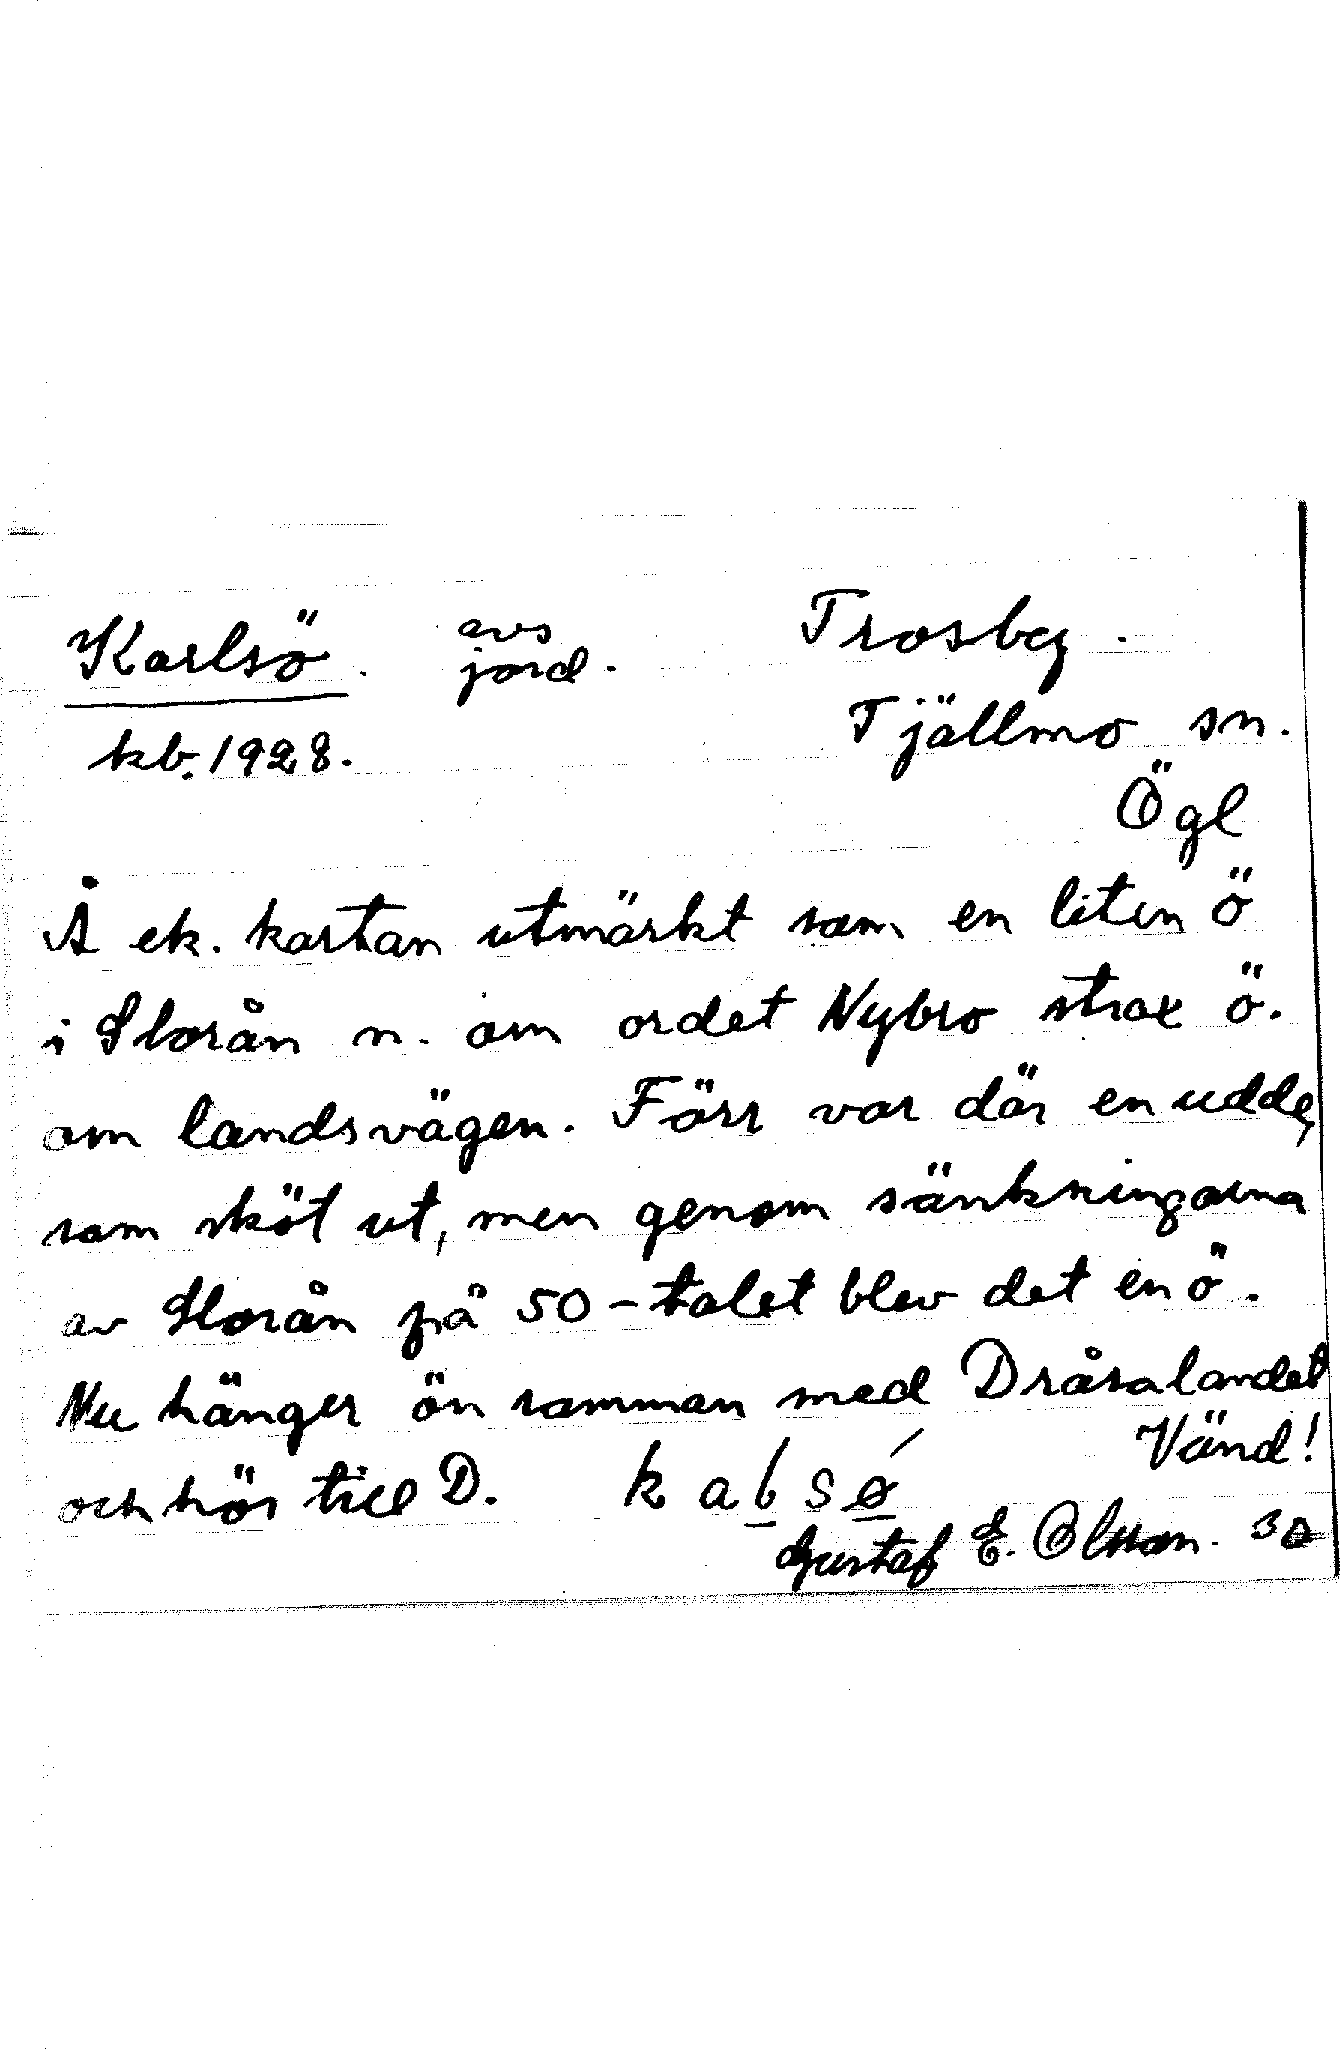 Karlsö. avs jord. Trosby.
kb. 1928. Tjällmo sn.
Ögl
Å ek. kartan utmärkt som en liten ö
i Storån n. om ordet Nybro strax ö.
om landsvägen. Förr var där en udde,
som sköt ut, men genom sänkningarna
av Storån på 50-talet blev det en ö.
Nu hänger ön samman med Dråsalandet
och hör till D. Vänd!
Gustaf E. Olsson. 30